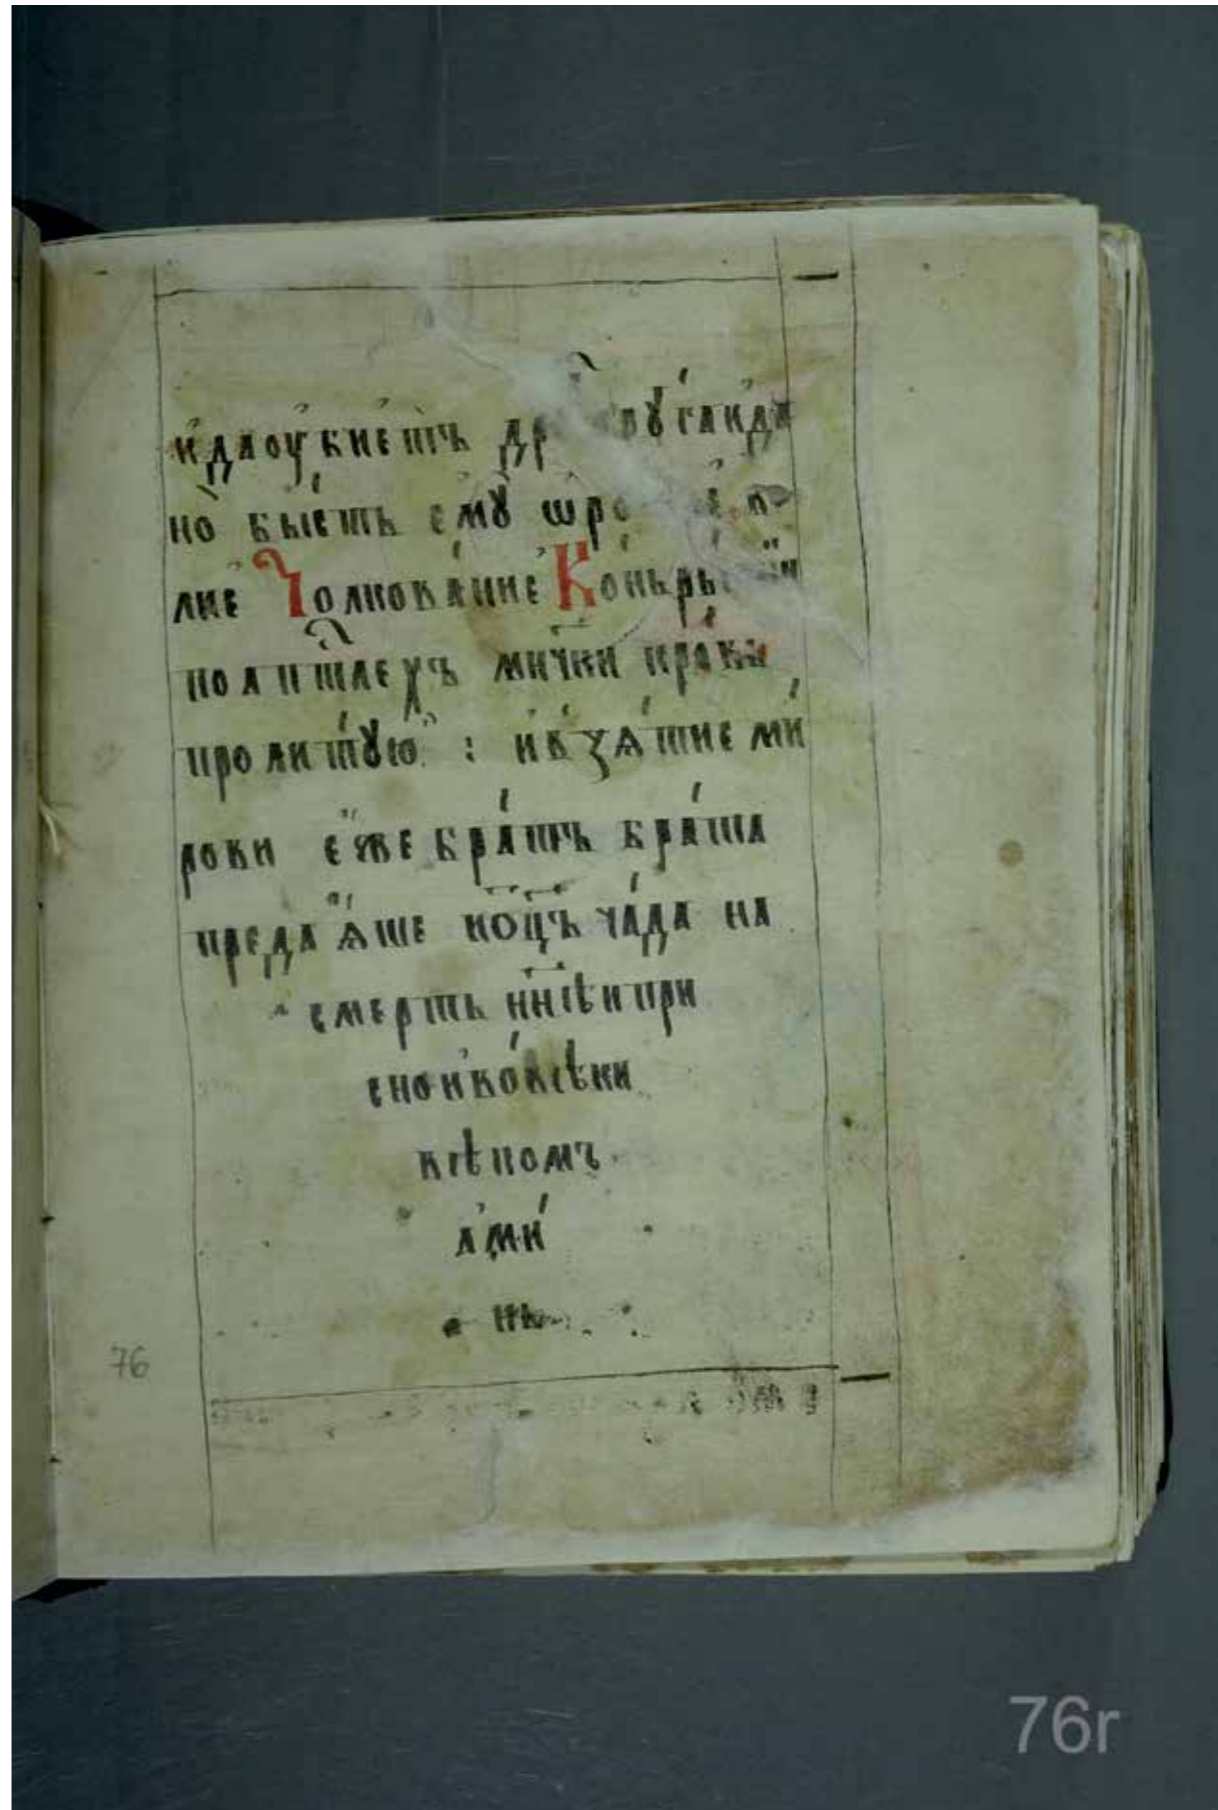 и҆да оу҆биетъ др руга и҆да
но бысть ему ѡр
лие Толкование Конь рыжїи
политлеꙋъ мч҃нки кровь
пролитꙋю : и҆ взѧтие ми
рови еже братъ брата
предаѧше и ѻц҃ъ чада на
смерть нн҃ѣ и при
сно и во вѣки
вѣкомъ
ами
нь
76
76r